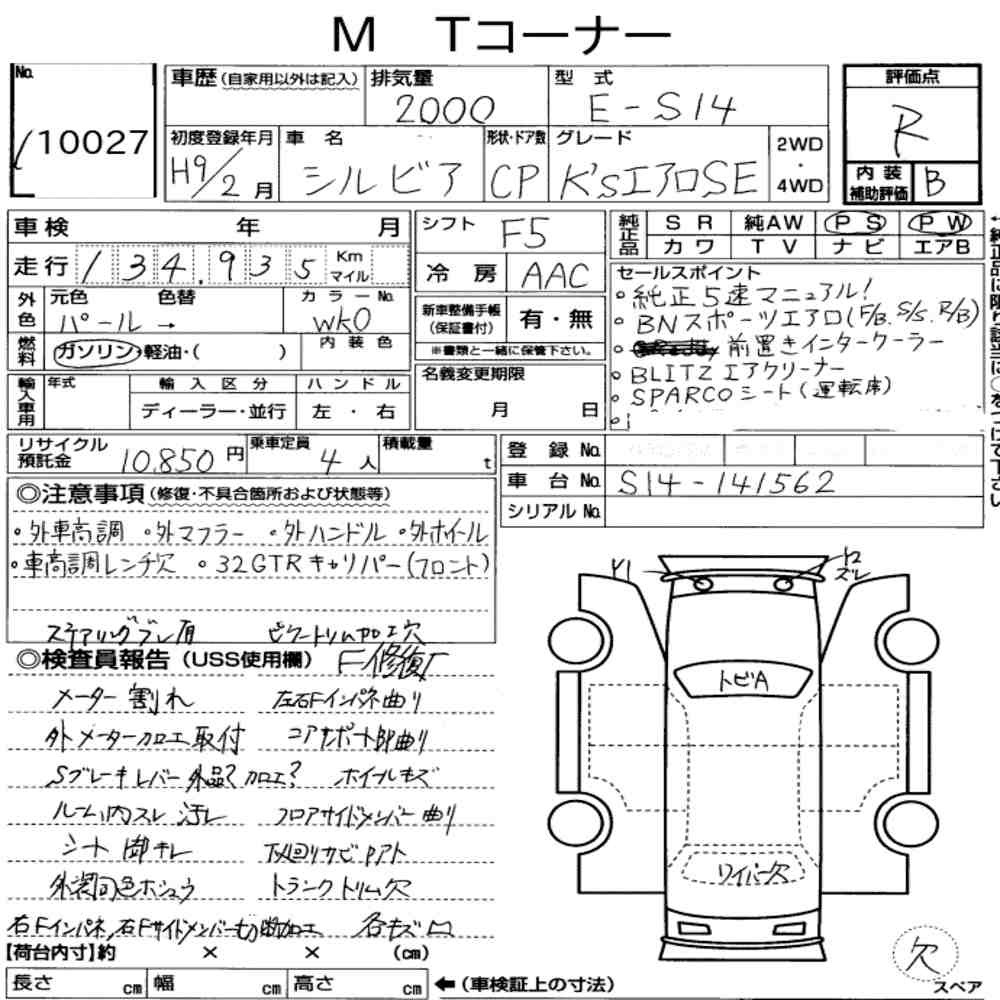 M Tコーナー
No.
10027
車歴(自家用以外は記入)
排気量
2000
型式
E-S14
評価点
R
初度登録年月
H9/2月
車名
シルビア
形状・ドア数
CP
グレード
K'sエアロSE
2WD
・
4WD
内装
補助評価
B
車検 年 月
走行 134,935 Km マイル
シフト
F5
冷房
AAC
純正品
SR 純AW PS PW
カワ TV ナビ エアB
外色
元色 色替
パール→
カラーNo.
WK0
燃料
ガソリン・軽油・( )
内装色
新車整備手帳
(保証書付)
有・無
※書類と一緒に保管下さい。
セールスポイント
・純正5速マニュアル!
・BNスポーツエアロ(F/B.S/S.R/B)
・前置きインタークーラー
・BLITZエアクリーナー
・SPARCOシート(運転席)
輸入車用
年式
輸入区分
ハンドル
ディーラー・並行
左・右
名義変更期限
月 日
リサイクル
預託金
10.850円
乗車定員
4人
積載量
t
登録No.
車台No.
S14-141562
シリアルNo.
◎注意事項(修復・不具合箇所および状態等)
・外車高調 ・外マフラー ・外ハンドル ・外ホイール
・車高調レンチ欠 ・32GTRキャリパー(フロント)
ステアリングブレ有 ピラートリム加工欠
◎検査員報告(USS使用欄)
メーター割れ 左右Fインパネ曲り
外メーター加工取付 コアサポート部曲り
Sブレーキレバー外品?加工? ホイールキズ
ルーム内スレ汚レ フロアサイドメンバー曲り
シート 切レ
下廻りサビPアト
外装同色ホシュウ トランクトリム欠
右Fインパネ,右Fサイドメンバー 加工 各キズ凹
【荷台内寸】約 × × (cm)
長さ cm 幅 cm 高さ cm
←(車検証上の寸法)
Y1
ズレ
トビA
ワイパー欠
欠
スペア